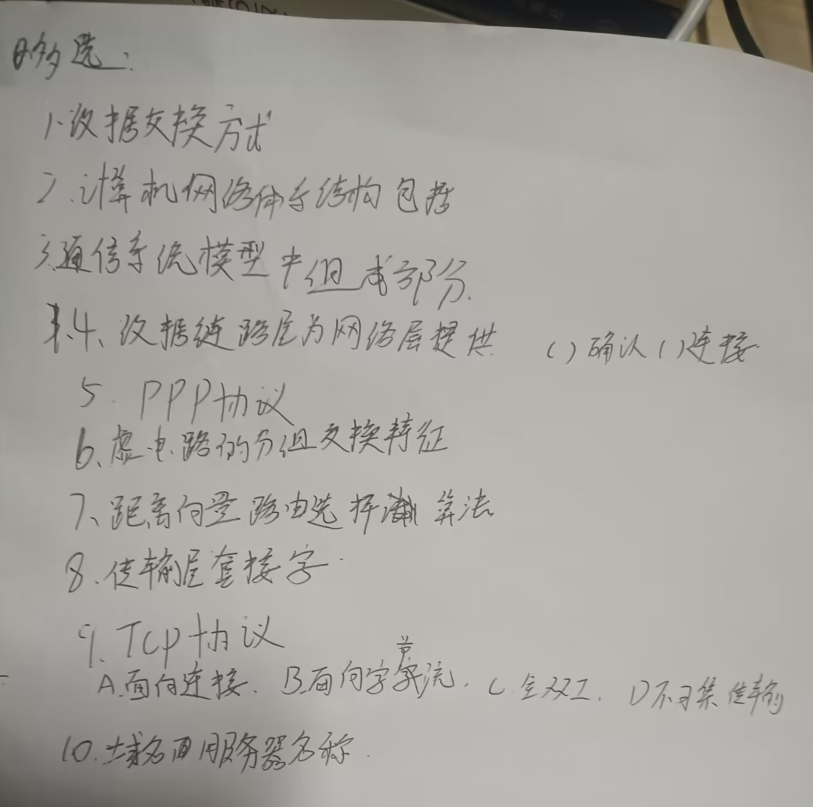 多选:
1.数据交换方式
2.计算机网络体系结构包括
3.通信系统模型中组成部分.
4、数据链路层为网络层提供 ( )确认( )连接
5. PPP协议
6、虚电路的分组交换特征
7、距离向量路由选择算法
8.传输层套接字.
9.TCP协议
A.面向连接. B.面向字节流. C全双工. D不可集传输
10.域名 服务器名称.